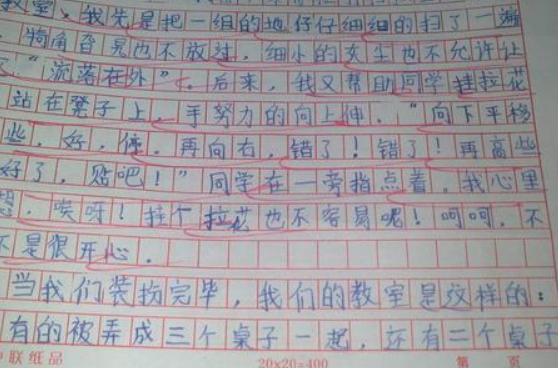 教室、我先是把一组的地仔仔细细的扫了一遍
，犄角旮旯也不放过，细小的灰尘也不允许让
“流落在外”。后来，我又帮助同学挂拉花
站在凳子上，手努力的向上伸，“向下平移
些，好，停，再向右，错了！错了！再高些
好了，贴吧！”同学在一旁指点着，我心里
想，唉呀！挂个拉花也不容易呢！呵呵，不
不是很开心。
当我们装扮完毕，我们的教室是这样的：
有的被弄成三个桌子一起，还有二个桌子
联纸品 20×20=400 第 页